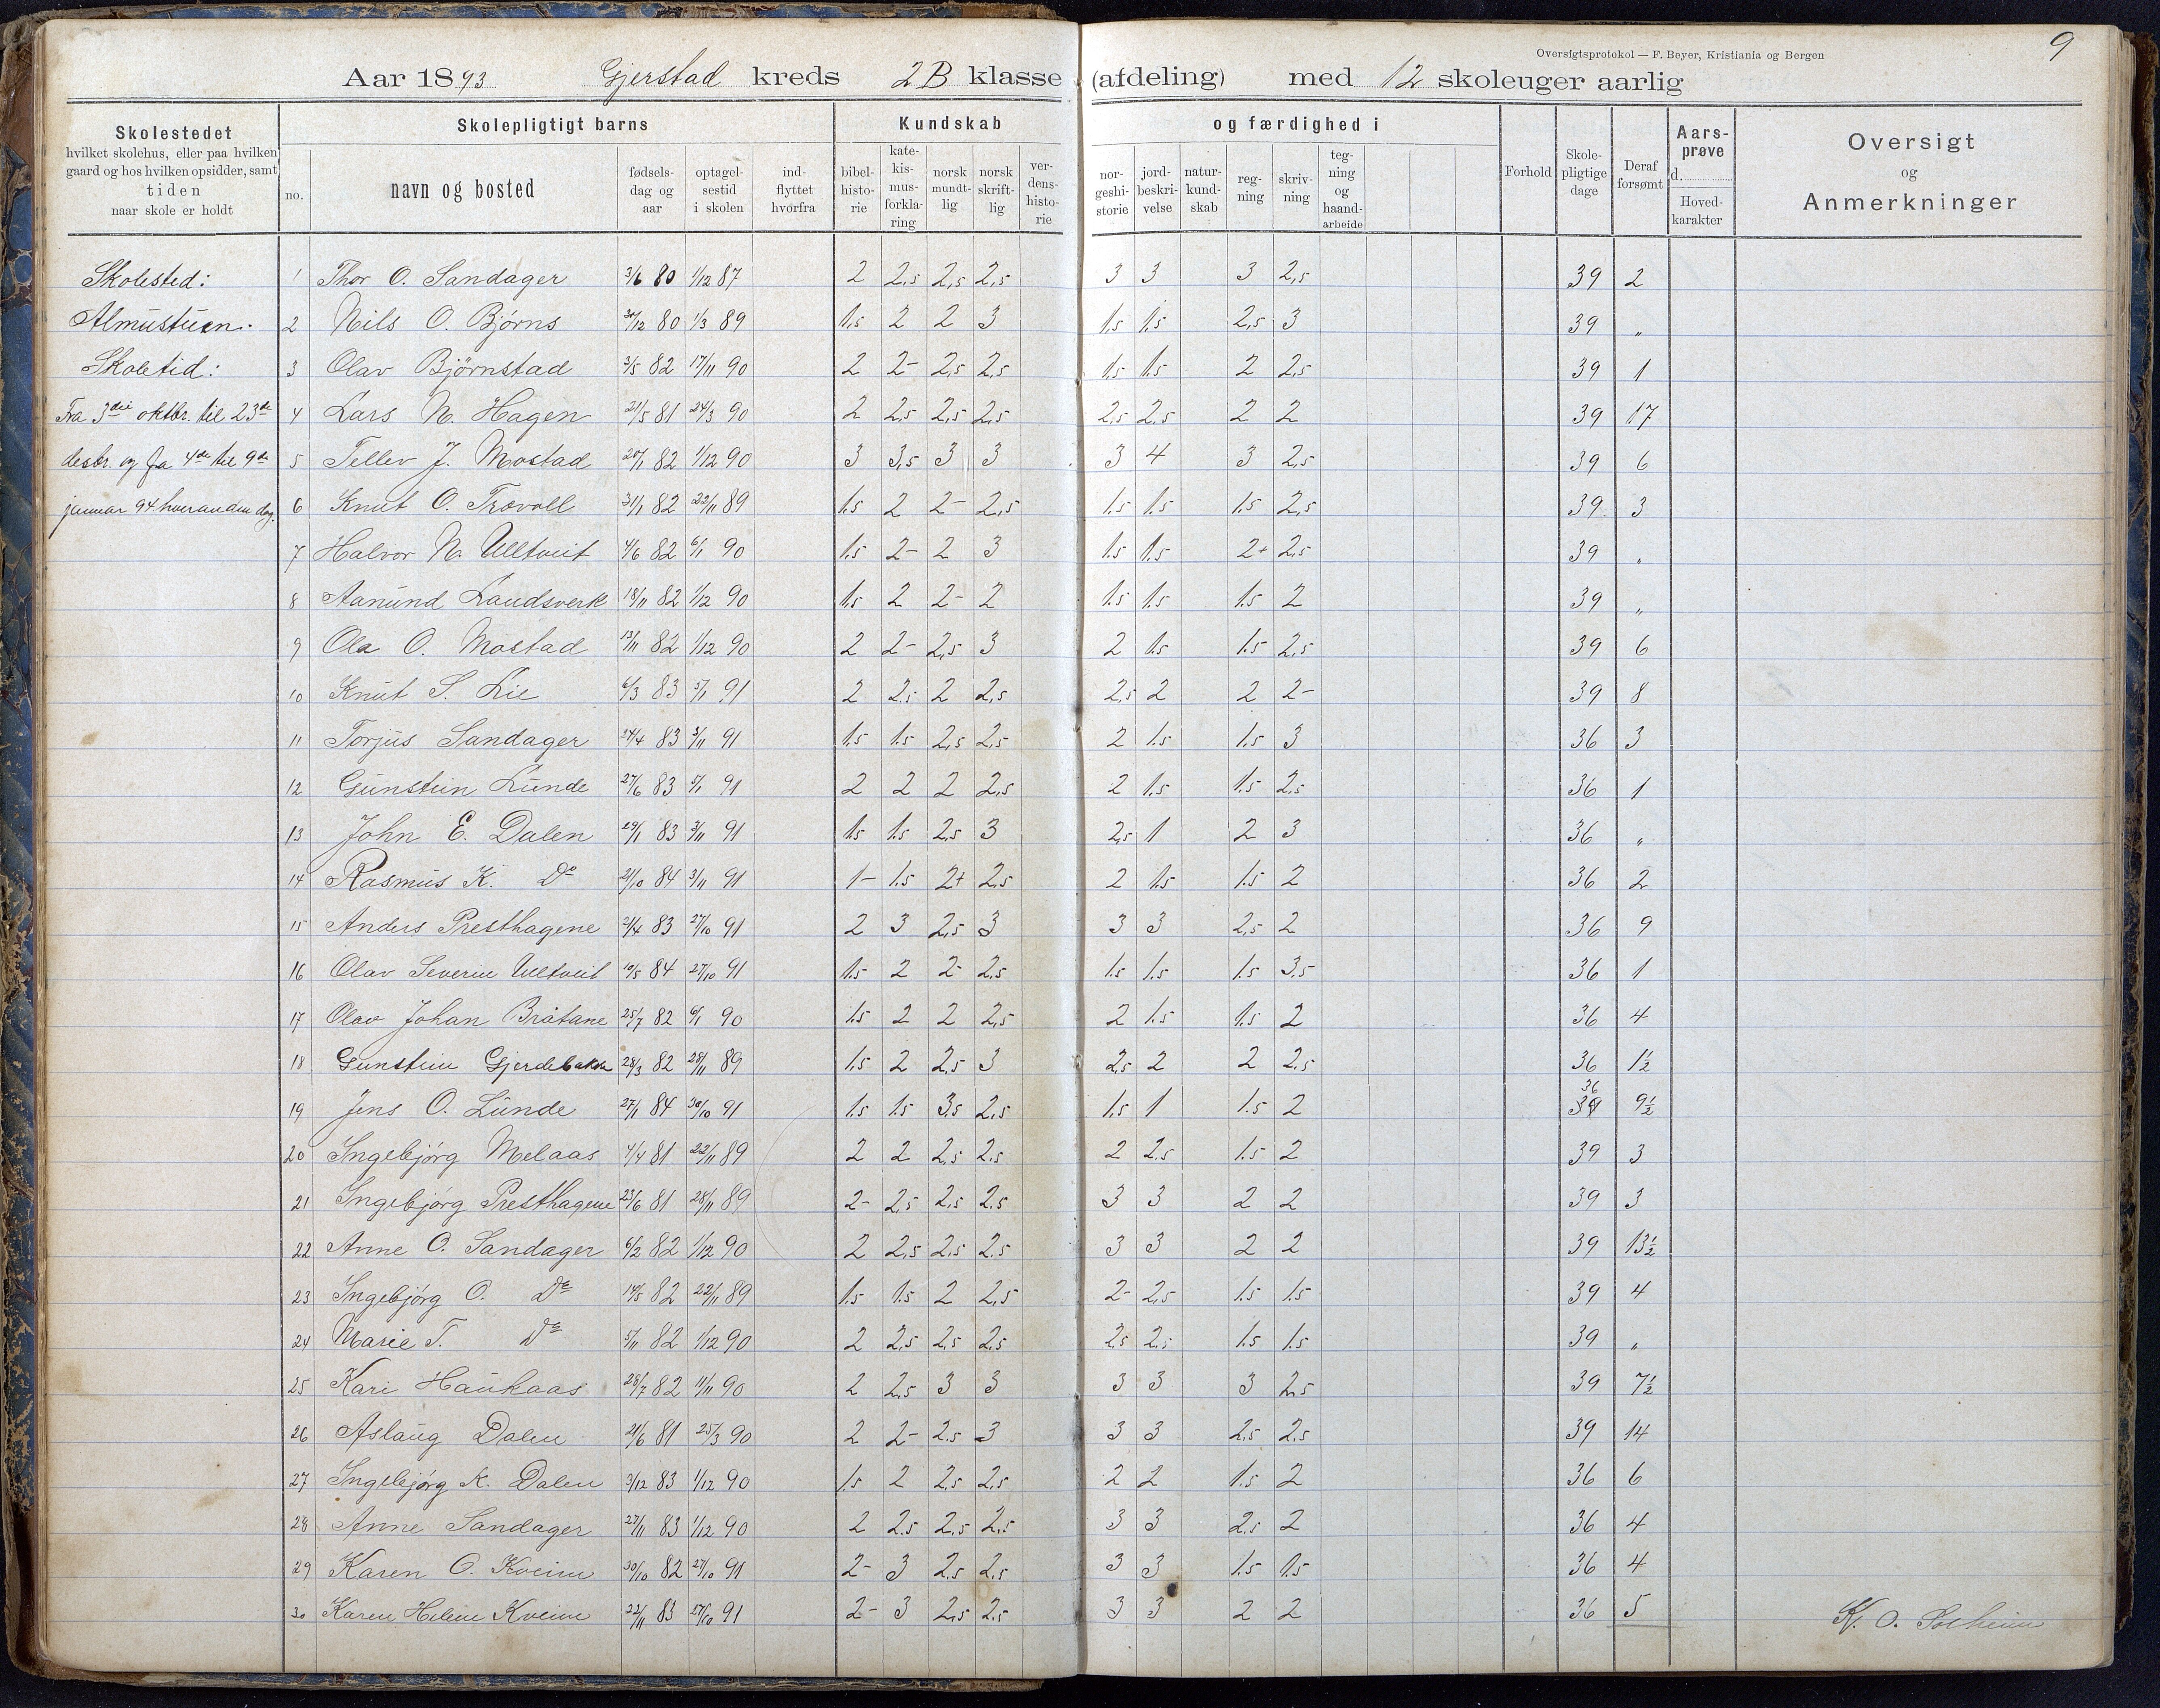 9
Oversigtsprotokol — F. Beyer, Kristiania og Bergen
Aar 1893 Gjerstad kreds 2B klasse (afdeling) med 12 skoleuger aarlig
Skolestedet hvilket skolehus, eller paa hvilken gaard og hos hvilken opsidder, samt tiden naar skole er holdt
Skolepligtigt barns
no. navn og bosted fødsels-dag og aar optagel-sestid i skolen ind-flyttet hvorfra
Kundskab og færdighed i
bibel-histo-rie kate-kis-mus-forkla-ring norsk mundt-lig norsk skrift-lig ver-dens-histo-rie nor-geshi-storie jord-beskri-velse natur-kund-skab reg-ning skriv-ning teg-ning og haand-arbeide
Forhold Skole-pligtige dage Deraf forsømt Aars-prøve d. Hoved-karakter
Oversigt og Anmerkninger
Skolested:
Almustuen.
Skoletid:
Fra 3die oktbr. til 23de
desbr. og fra 4de til 9de
januar 94 hveranden dag.
1 Thor O. Sandager 3/6 80 1/12 87 2 2,5 2,5 2,5 3 3 3 2,5 39 2
2 Nils O. Bjørns 30/12 80 1/3 89 1,5 2 2 3 1,5 1,5 2,5 3 39 "
3 Olav Bjørnstad 3/5 82 17/11 90 2 2- 2,5 2,5 1,5 1,5 2 2,5 39 1
4 Lars N. Hagen 21/5 81 24/3 90 2 2,5 2,5 2,5 2,5 2,5 2 2 39 17
5 Tellev J. Mostad 20/1 82 1/12 90 3 3,5 3 3 3 4 3 2,5 39 6
6 Knut O. Trøvoll 31/1 82 22/11 89 1.5 2 2- 2,5 1.5 1.5 1.5 2,5 39 3
7 Halvor N. Ulltveit 4/6 82 6/1 90 1.5 2- 2 3 1.5 1.5 2+ 2,5 39 "
8 Aanund Landsverk 18/11 82 1/12 90 1.5 2 2- 2 1.5 1.5 1.5 2 39 "
9 Ola O. Mostad 13/11 82 1/12 90 2 2- 2,5 3 2 1.5 1.5 2,5 39 6
10 Knut S. Lie 6/3 83 5/1 91 2 2.5 2 2,5 2,5 2 2 2- 39 8
11 Torjus Sandager 24/4 83 3/11 91 1.5 1.5 2,5 2,5 2 1.5 1.5 3 36 3
12 Gunstein Lunde 27/6 83 5/1 91 2 2 2 2,5 2 1.5 1.5 2,5 36 1
13 John E. Dalen 29/1 83 3/11 91 1.5 1.5 2,5 3 2,5 1 2 3 36 "
14 Rasmus K. Do 21/10 84 3/11 91 1- 1.5 2+ 2,5 2 1.5 1.5 2 36 2
15 Anders Presthagene 21/4 83 27/10 91 2 3 2,5 3 3 3 2,5 2 36 9
16 Olav Severin Ulltveit 10/5 84 27/10 91 1.5 2 2- 2,5 1.5 1.5 1.5 3,5 36 1
17 Olav Johan Bråtane 25/7 82 6/1 90 1.5 2 2 2,5 2 1.5 1.5 2 36 4
18 Gunstein Gjerdebakke 28/3 82 28/11 89 1.5 2 2,5 3 2,5 2 2 2,5 36 1½
19 Jens O. Lunde 27/1 84 30/10 91 1.5 1.5 3,5 2,5 1.5 1 1.5 2 36 9½
20 Ingebjørg Melaas 4/4 81 22/11 89 2 2 2,5 2.5 2 2,5 1.5 2 39 3
21 Ingebjørg Presthagene 23/6 81 28/11 89 2- 2,5 2,5 2,5 3 3 2 2 39 3
22 Anne O. Sandager 6/2 82 1/12 90 2 2,5 2,5 2.5 3 3 2 2 39 13½
23 Ingebjørg O. Do 14/5 82 22/11 89 1.5 1.5 2 2,5 2- 2,5 1.5 1.5 39 4
24 Marie T. Do 5/11 82 1/12 90 2 2,5 2,5 2,5 2,5 2,5 1.5 1.5 39 "
25 Kari Haukaas 28/7 82 11/11 90 2 2,5 3 3 3 3 3 2,5 39 7½
26 Aslaug Dalen 21/6 81 25/3 90 2 2- 2.5 3 3 3 2,5 2,5 39 14
27 Ingebjørg K. Dalen 3/12 83 1/12 90 1.5 2 2,5 2,5 2 2 1.5 2 36 6
28 Anne Sandager 27/11 83 1/12 90 2 2.5 2,5 2,5 3 3 2,5 2 36 4
29 Karen O. Kveim 30/10 82 27/10 91 2- 3 2,5 2,5 3 3 1.5 1.5 36 4
30 Karen Helene Kveim 22/11 83 27/10 91 2- 3 2,5 2,5 3 3 2 2 36 5
K. O. Solheim